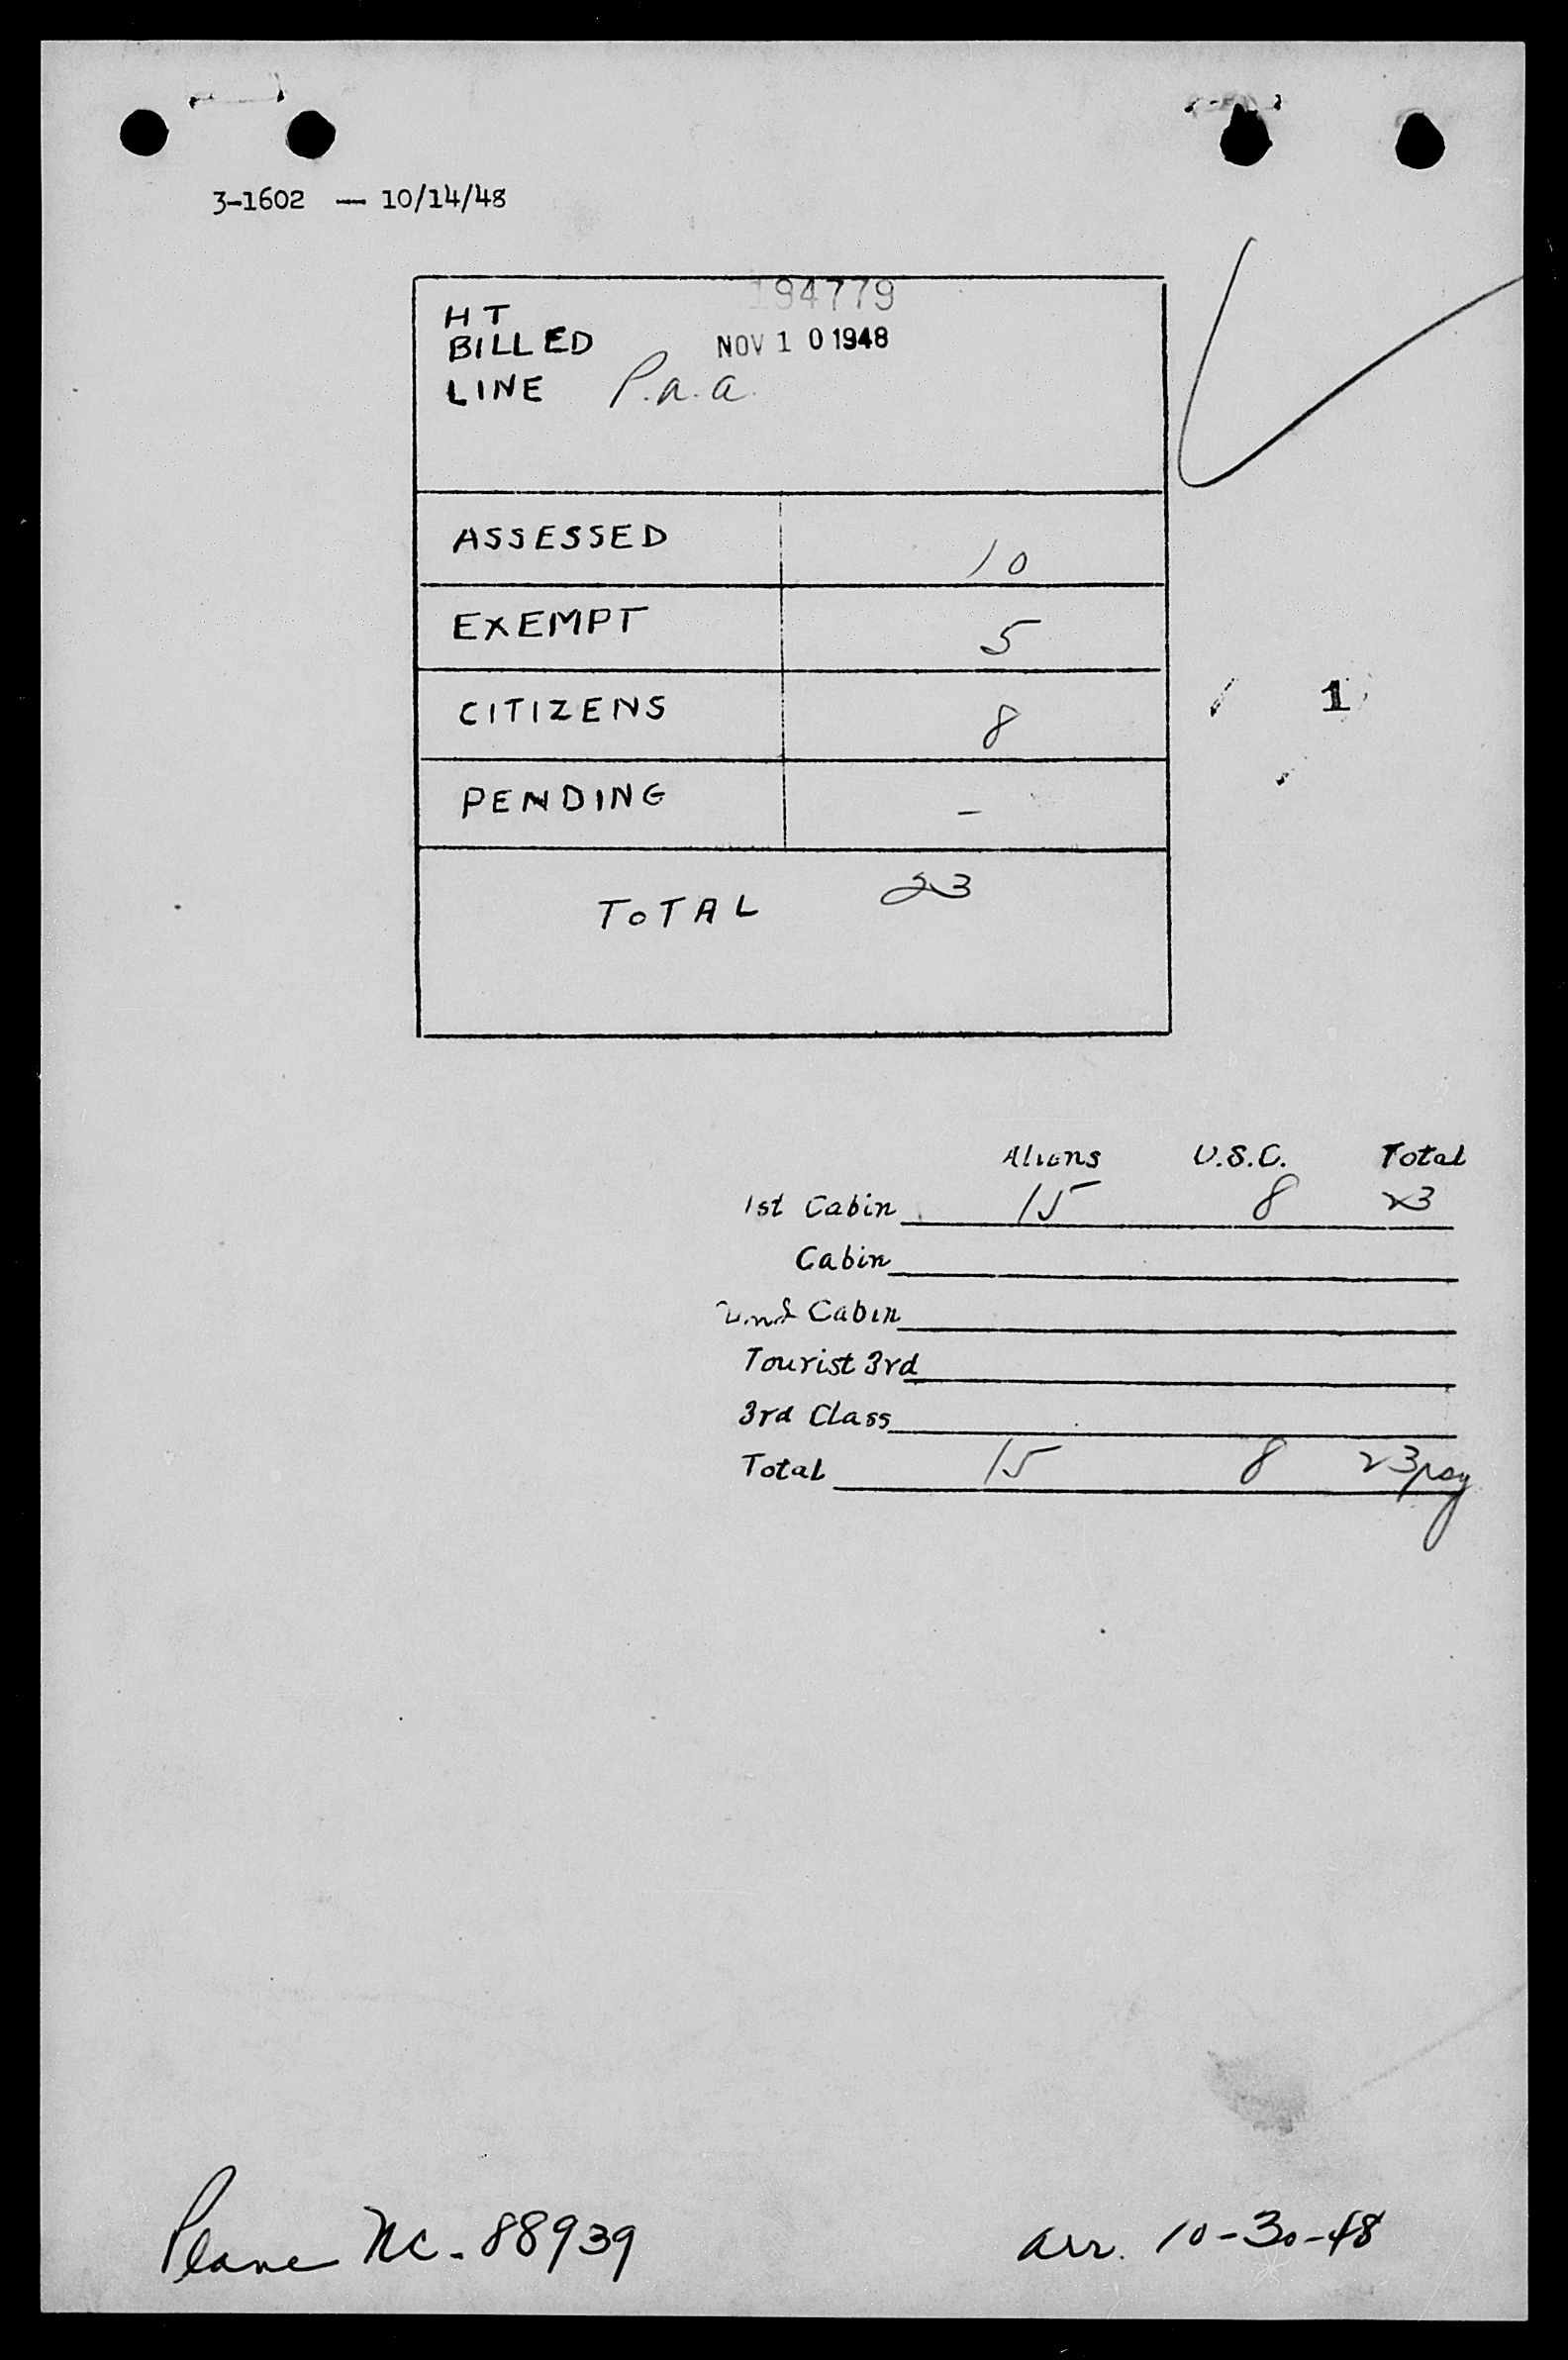 3-1602 — 10/14/48
194779
HT
BILLED NOV 10 1948
LINE P.a.a.
ASSESSED 10
EXEMPT 5
CITIZENS 8
1
PENDING –
TOTAL 23
Aliens U.S.C. Total
1st Cabin 15 8 23
Cabin
2nd Cabin
Tourist 3rd
3rd Class
Total 15 8 23
Plane NC-88939 arr. 10-30-48